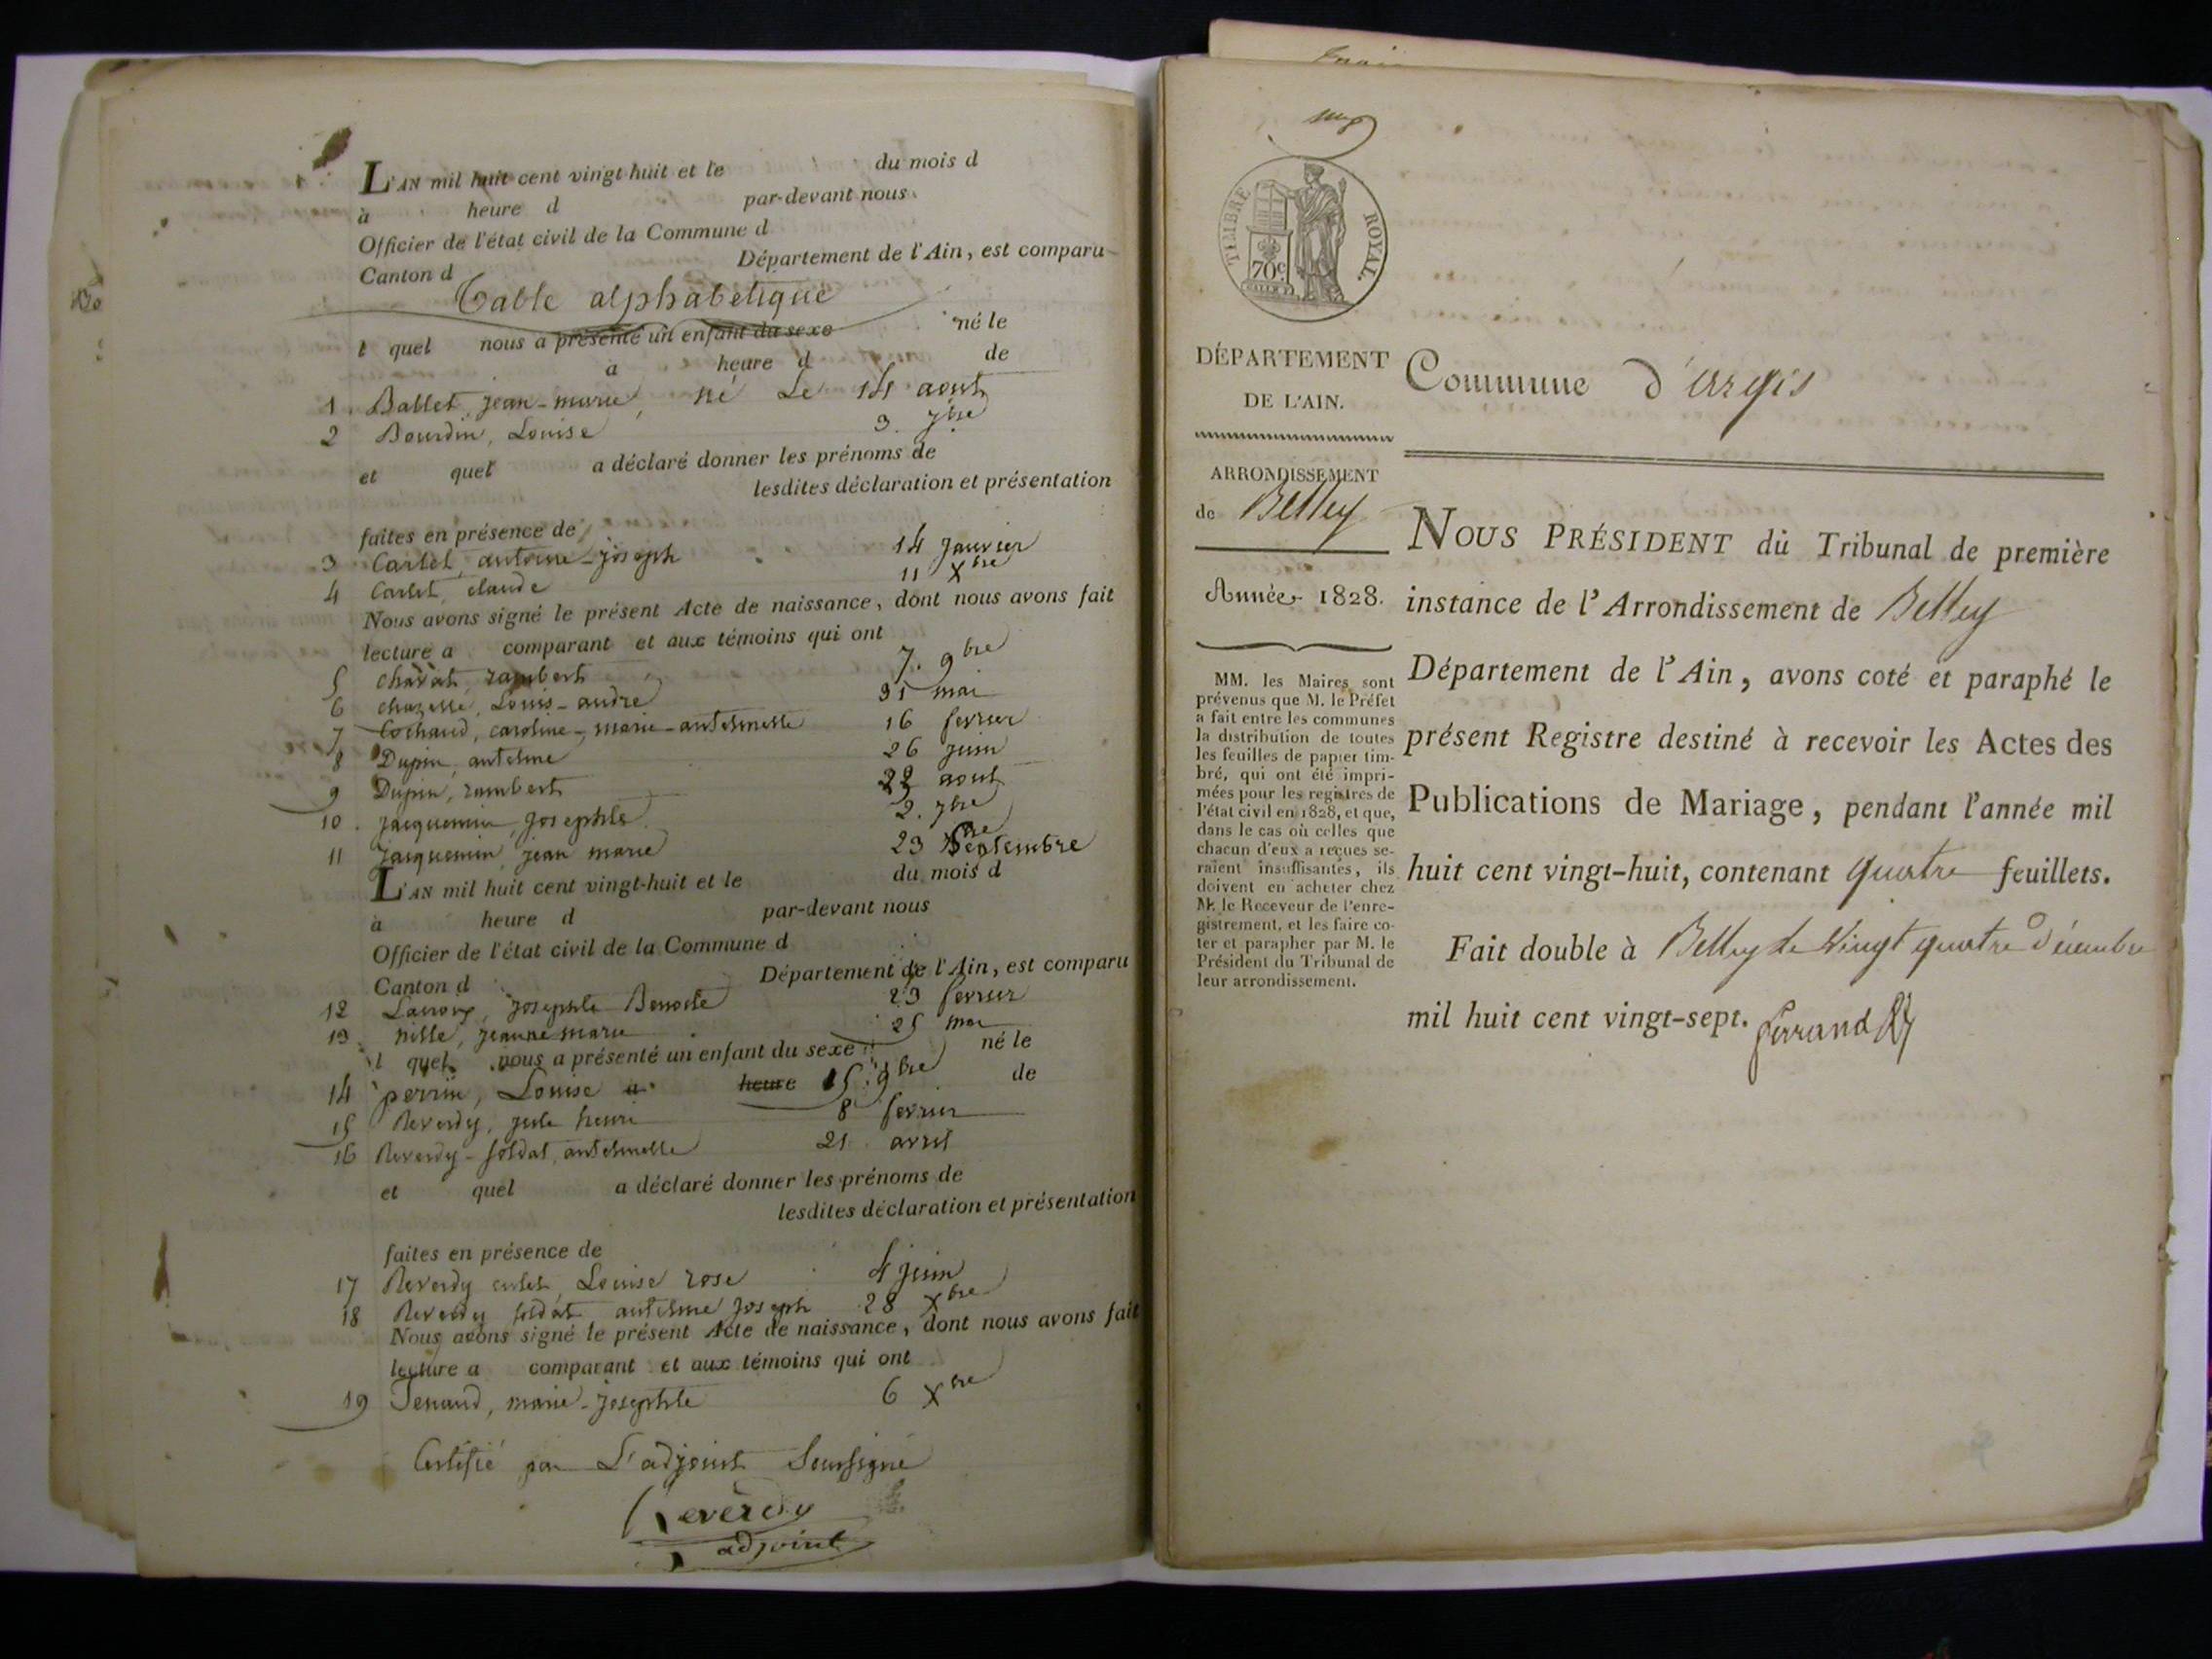 L'AN mil huit cent vingt-huit et le du mois d
à heure d par-devant nous
Officier de l'état civil de la Commune d
Canton d Département de l'Ain, est comparu
Table alphabétique
l quel nous a présenté un enfant du sexe né le
à heure d de
1. Ballet, jean-marie, né Le 14 aout
2 Bourdin, Louise 3. 7bre
et quel a déclaré donner les prénoms de
lesdites déclaration et présentation
faites en présence de
3 Carlet, antoine-joseph 14 janvier
4 Carlet, claude 11 Xbre
Nous avons signé le présent Acte de naissance, dont nous avons fait
lecture a comparant et aux témoins qui ont
5 chavat, rambert 7. 9bre
6 chazelle, Louis-andre 31 mai
7 Cochaud, caroline-marie-anthelmette 16 fevrier
8 Dupin, anthelme 26 juin
9 Dupin, rambert 22 aout
10. jacquemin, josephte 2. 7bre
11 jacquemin jean marie 23 Septembre
L'AN mil huit cent vingt-huit et le du mois d
à heure d par-devant nous
Officier de l'état civil de la Commune d
Canton d Département de l'Ain, est comparu
12 josephte Benoite 23 fevrier
13. jeanne marie 25 mai
l quel nous a présenté un enfant du sexe né le
14 perrin, Louise a heure 15. 9bre de
15 Reverdy, jule henri 8 fevrier
16 Reverdy-soldat, anthelmette 21 avril
et quel a déclaré donner les prénoms de
lesdites déclaration et présentation
faites en présence de
17 Reverdy carlet, Louise rose 4 juin
18 Reverdy soldat anthelme joseph 28 Xbre
Nous avons signé le présent Acte de naissance, dont nous avons fait
lecture a comparant et aux témoins qui ont
19 Tenand, marie-josephte 6 Xbre
Certifié par L'adjoint Soussigné
Reverdy
adjoint
TIMBRE ROYAL.
70c
DÉPARTEMENT
DE L'AIN.
ARRONDISSEMENT
de Belley
Année 1828.
MM. les Maires sont
prévenus que M. le Préfet
a fait entre les communes
la distribution de toutes
les feuilles de papier tim-
bré, qui ont été impri-
mées pour les registres de
l'état civil en 1828, et que,
dans le cas où celles que
chacun d'eux a reçues se-
raient insuffisantes, ils
doivent en acheter chez
M. le Receveur de l'enre-
gistrement, et les faire co-
ter et parapher par M. le
Président du Tribunal de
leur arrondissement.
Commune d'argis
NOUS PRÉSIDENT du Tribunal de première
instance de l'Arrondissement de Belley
Département de l'Ain, avons coté et paraphé le
présent Registre destiné à recevoir les Actes des
Publications de Mariage, pendant l'année mil
huit cent vingt-huit, contenant quatre feuillets.
Fait double à Belley le Vingt quatre Décembre
mil huit cent vingt-sept.